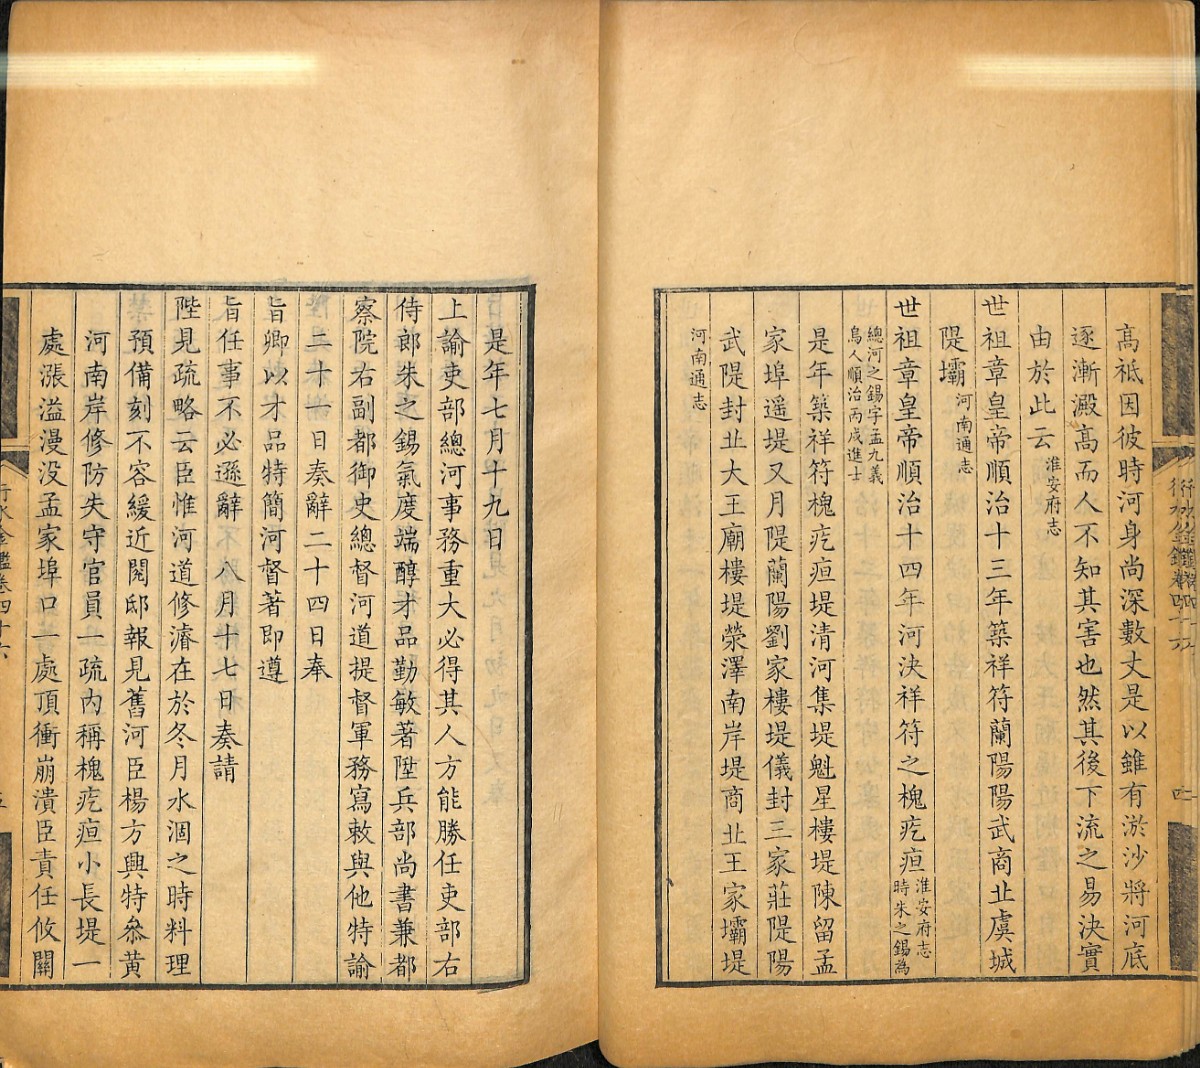 高祇因彼時河身尚深數丈是以雖有淤沙將河底
逐漸澱高而人不知其害也然其後下流之易決實
由於此云淮安府志
世祖章皇帝順治十三年築祥符蘭陽陽武商丘虞城
隄壩河南通志
世祖章皇帝順治十四年河決祥符之槐疙疸淮安府志
時朱之錫為
總河之錫字孟九義
烏人順治丙戍進士
是年築祥符槐疙疸堤清河集堤魁星樓堤陳留孟
家埠遥堤又月隄蘭陽劉家樓堤儀封三家莊隄陽
武隄封丘大王廟樓堤滎澤南岸堤商丘王家壩堤
河南通志
行水金鑑卷四十六
五
是年七月十九日
上諭吏部總河事務重大必得其人方能勝任吏部右
侍郎朱之錫氣度端醇才品勤敏著陞兵部尚書兼都
察院右副都御史總督河道提督軍務寫敕與他特諭
二十一日奏辭二十四日奉
旨卿以才品特簡河督著即遵
旨任事不必遜辭八月十七日奏請
陛見疏略云臣惟河道修濬在於冬月水涸之時料理
預備刻不容緩近閱邸報見舊河臣楊方興特叅黄
河南岸修防失守官員一疏内稱槐疙疸小長堤一
處漲溢漫没孟家埠口一處頂衝崩潰臣責任攸關